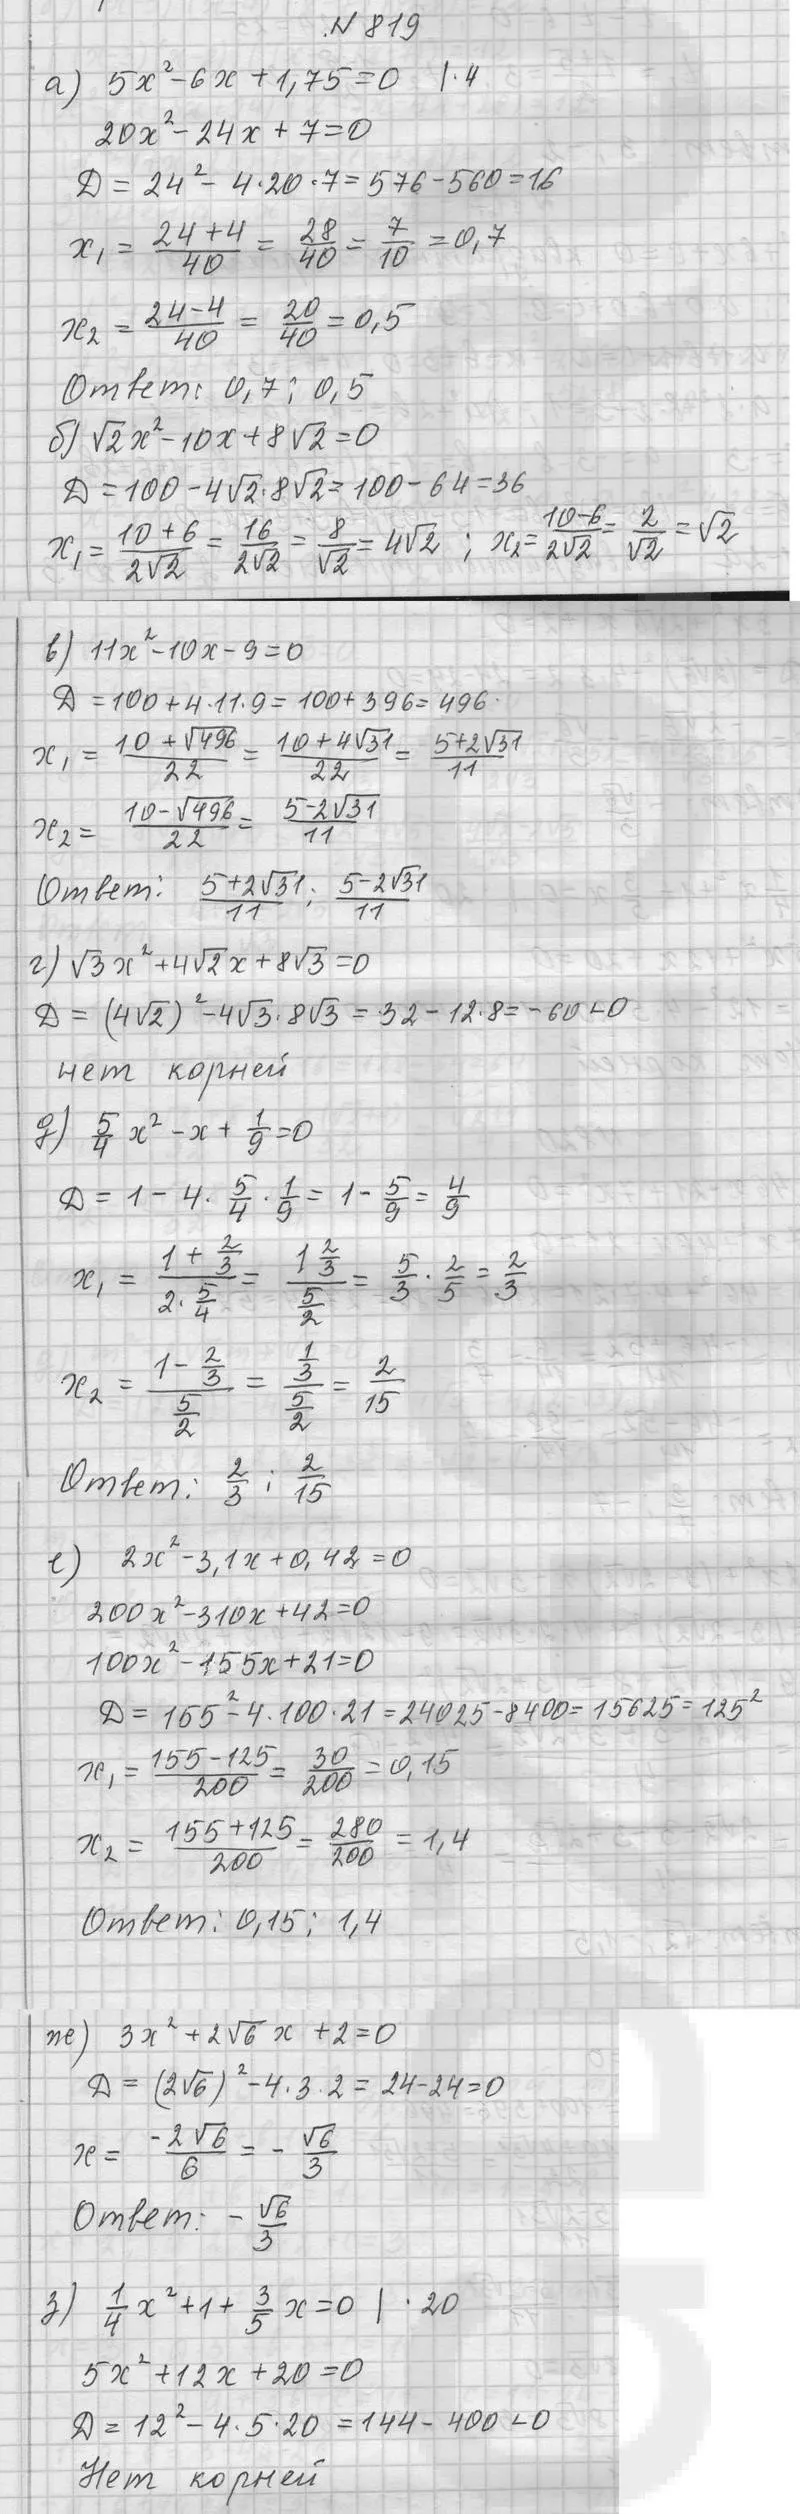 № 819
а) 5x² - 6x + 1,75 = 0 | · 4
20x² - 24x + 7 = 0
Д = 24² - 4·20·7 = 576 - 560 = 16
x₁ = (24+4)/40 = 28/40 = 7/10 = 0,7
x₂ = (24-4)/40 = 20/40 = 0,5
Ответ: 0,7; 0,5
б) √2x² - 10x + 8√2 = 0
Д = 100 - 4√2·8√2 = 100 - 64 = 36
x₁ = (10+6)/(2√2) = 16/(2√2) = 8/√2 = 4√2 ; x₂ = (10-6)/(2√2) = 2/√2 = √2
в) 11x² - 10x - 9 = 0
Д = 100 + 4·11·9 = 100 + 396 = 496
x₁ = (10+√496)/22 = (10+4√31)/22 = (5+2√31)/11
x₂ = (10-√496)/22 = (5-2√31)/11
Ответ: (5+2√31)/11 ; (5-2√31)/11
г) √3x² + 4√2x + 8√3 = 0
Д = (4√2)² - 4√3·8√3 = 32 - 12·8 = - 60 < 0
нет корней
д) 5/4 x² - x + 1/9 = 0
Д = 1 - 4 · 5/4 · 1/9 = 1 - 5/9 = 4/9
x₁ = (1 + 2/3)/(2·5/4) = (1 2/3)/(5/2) = 5/3 · 2/5 = 2/3
x₂ = (1 - 2/3)/(5/2) = (1/3)/(5/2) = 2/15
Ответ: 2/3 ; 2/15
е) 2x² - 3,1x + 0,42 = 0
200x² - 310x + 42 = 0
100x² - 155x + 21 = 0
Д = 155² - 4·100·21 = 24025 - 8400 = 15625 = 125²
x₁ = (155-125)/200 = 30/200 = 0,15
x₂ = (155+125)/200 = 280/200 = 1,4
Ответ: 0,15; 1,4
ж) 3x² + 2√6 x + 2 = 0
Д = (2√6)² - 4·3·2 = 24 - 24 = 0
x = (-2√6)/6 = - √6/3
Ответ: - √6/3
з) 1/4 x² + 1 + 3/5 x = 0 | · 20
5x² + 12x + 20 = 0
Д = 12² - 4·5·20 = 144 - 400 < 0
Нет корней